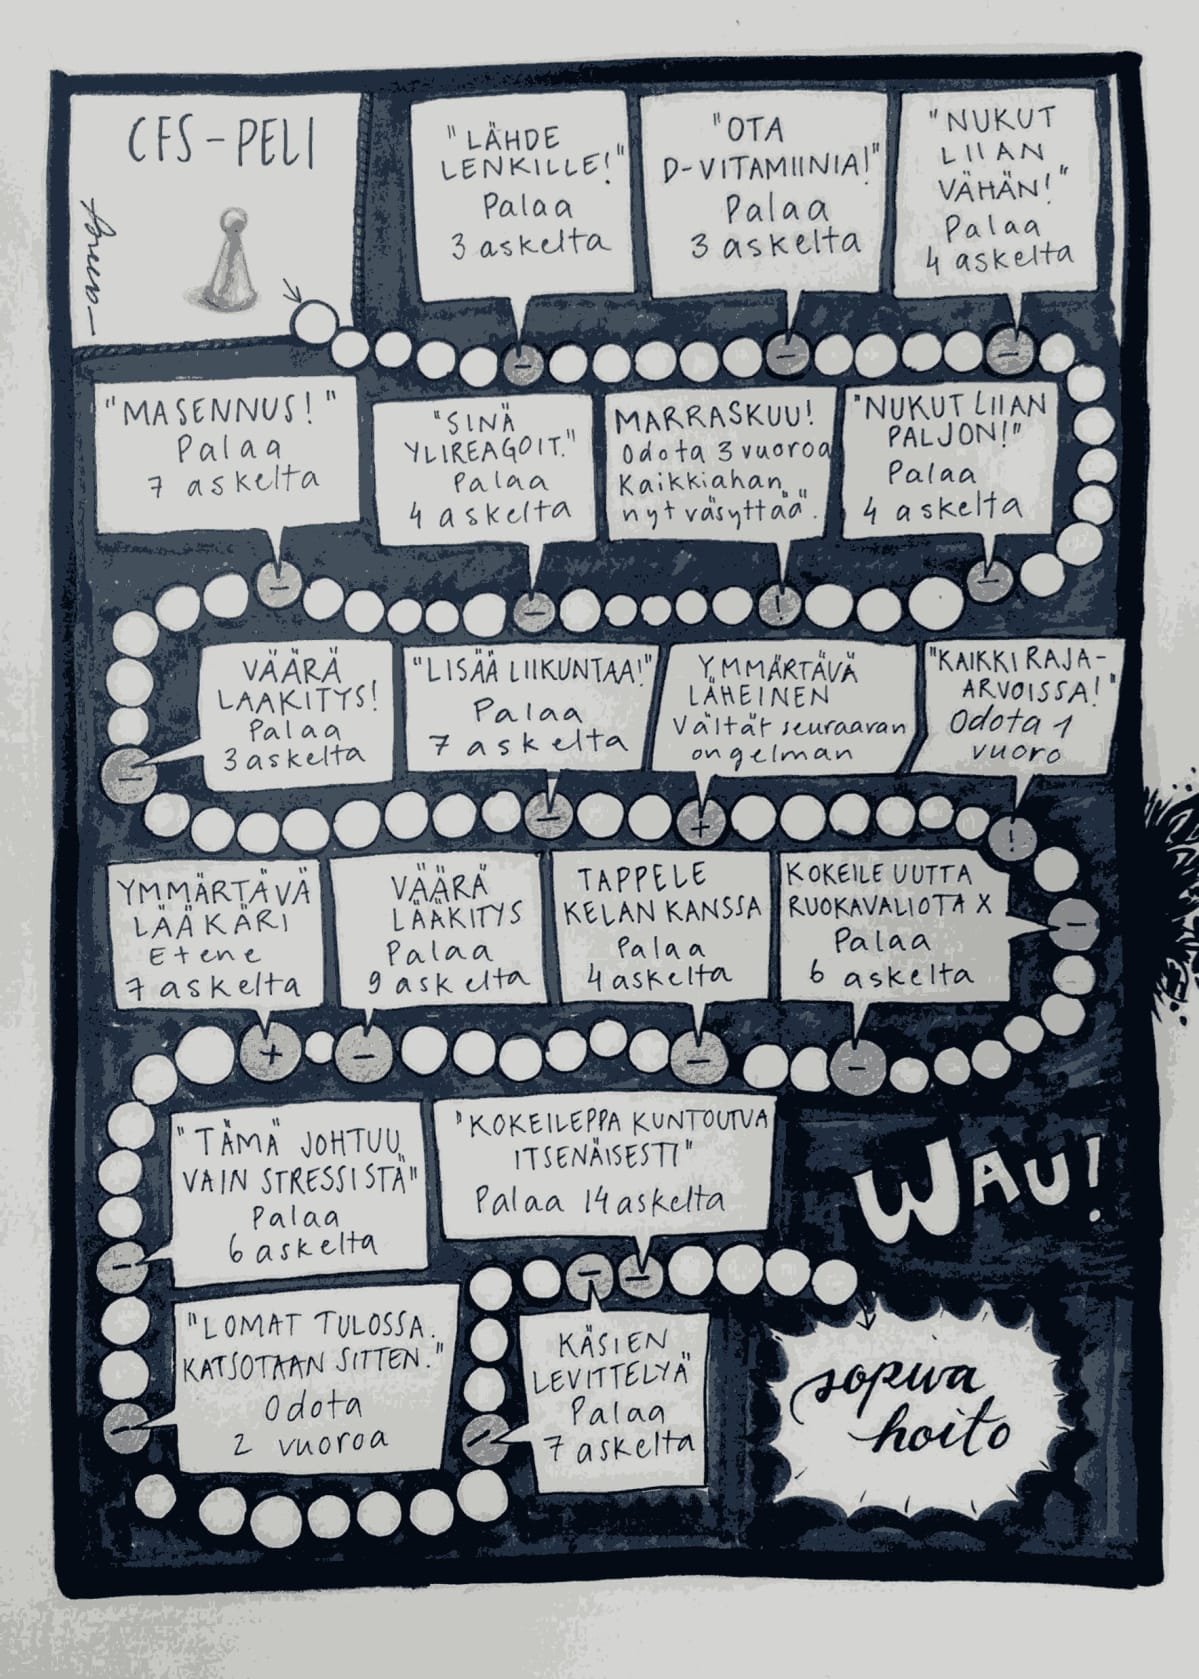 CFS-PELI
"LÄHDE
LENKILLE!"
Palaa
3 askelta
"OTA
D-VITAMIINIA!"
Palaa
3 askelta
"NUKUT
LIIAN
VÄHÄN!"
Palaa
4 askelta
"MASENNUS!"
Palaa
7 askelta
"SINÄ
YLIREAGOIT."
Palaa
4 askelta
MARRASKUU!
Odota 3 vuoroa
Kaikkiahan
nyt väsyttää".
"NUKUT LIIAN
PALJON!"
Palaa
4 askelta
VÄÄRÄ
LÄÄKITYS!
Palaa
3 askelta
"LISÄÄ LIIKUNTAA!"
Palaa
7 askelta
YMMÄRTÄVÄ
LÄHEINEN
Vältät seuraavan
ongelman
"KAIKKI RAJA-
ARVOISSA!"
Odota 1
vuoro
YMMÄRTÄVÄ
LÄÄKÄRI
Etene
7 askelta
VÄÄRÄ
LÄÄKITYS
Palaa
9 askelta
TAPPELE
KELAN KANSSA
Palaa
4 askelta
KOKEILE UUTTA
RUOKAVALIOTA X
Palaa
6 askelta
"TÄMÄ JOHTUU
VAIN STRESSISTÄ"
Palaa
6 askelta
"KOKEILEPPA KUNTOUTUA
ITSENÄISESTI"
Palaa 14 askelta
WAU!
"LOMAT TULOSSA.
KATSOTAAN SITTEN."
Odota
2 vuoroa
KÄSIEN
LEVITTELYÄ
Palaa
7 askelta
sopiva
hoito